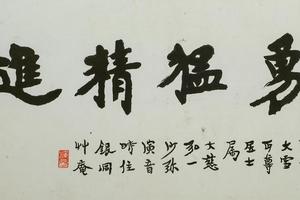 勇猛精進
大雪
丏尊
居士
属
大慈
弘一
沙弥
演音
時住
銀洞
艸庵